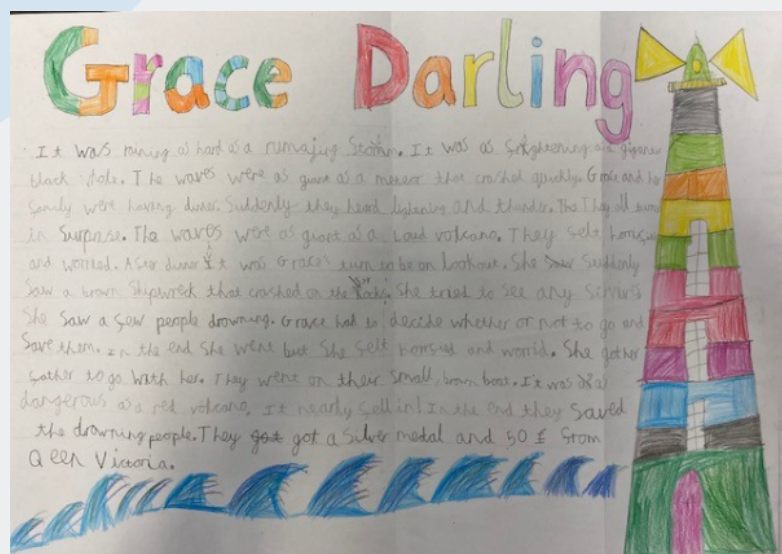 Grace Darling
It was raining as hard as a rumajing Storm. It was as frightening as a gigane
black hole. The waves were as giant as a meteor that crashed quickly. Grace and her
family were having diner. Suddenly they heard lightening and thunder. They all turned
in Surprise. The waves were as giant as a Loud volcano. They felt
and worried. After dinner It was Grace's turn to be on lookout. She Suddenly
Saw a brown Shipwreck that crashed on the Rocks. She tried to see any
She Saw a few people drowning. Grace had to decide whether or not to go and
Save them. In the end She went but She felt and worrid. She got her
father to go with her. They went on their Small brown boat. It was as
dangerous as a red volcano. It nearly fell in! In the end they Saved
the drowning people. They got a Silver medal and 50 £ from
Qeen Victoria.